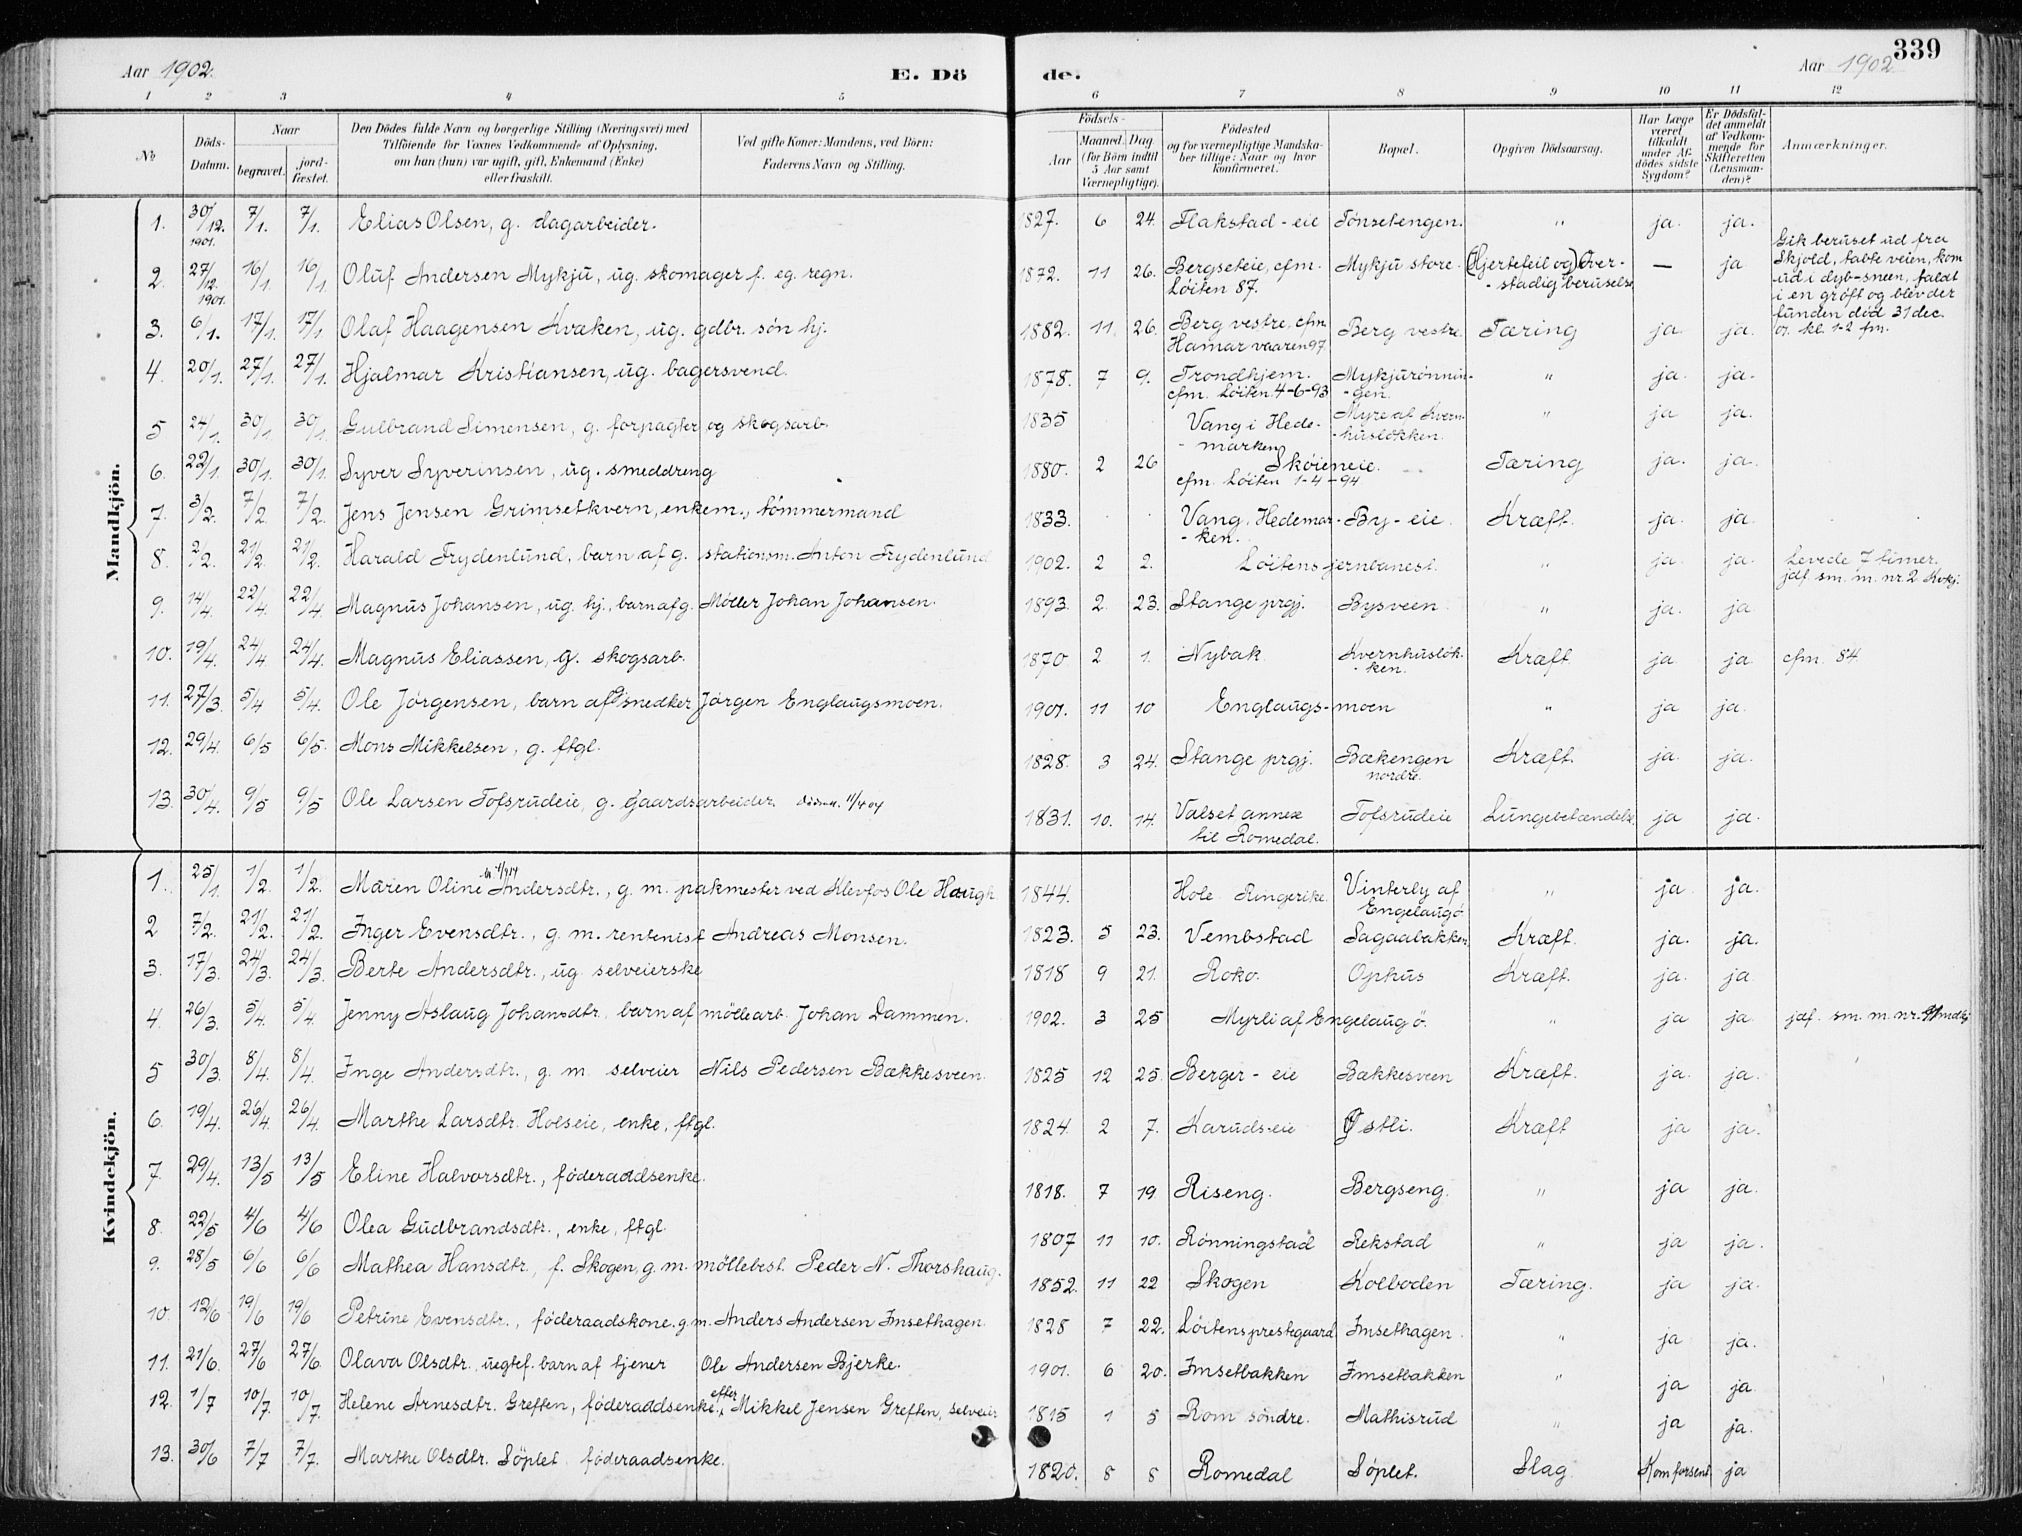 339
Aar 1902.
E. Döde.
Aar 1902
1 2 3 4 5 6 7 8 9 10 11 12
No
Döds-Datum.
Naar
begravet.
jordfæstet.
Den Dödes fulde Navn og borgerlige Stilling (Næringsvei) med
Tilföiende for Voxnes Vedkommende af Oplysning,
om han (hun) var ugift, gift, Enkemand (Enke)
eller fraskilt.
Ved gifte Koner: Mandens, ved Börn:
Faderens Navn og Stilling.
Födsels-
Aar
Maaned. Dag
(for Börn indtil
5 Aar samt
Værnepligtige).
Födested
og for værnepligtige Mandskaber tillige: Naar og hvor
konfirmeret.
Bopæl.
Opgiven Dödsaarsag.
Har Læge
været
tilkaldt
under Afdödes sidste
Sygdom?
Er Dödsfaldet anmeldt
af Vedkommende for
Skifteretten
(Lensmanden)?
Anmærkninger.
Mandkjön.
1. 30/12. 1901. 7/1. 7/1. Elias Olsen, g. dagarbeider. 1827. 6 24. Flakstad-eie Tönsetengen. " ja. ja.
2. 27/12. 1901. 16/1 16/1 Oluf Andersen Mykju, ug. skomager f. eg. regn. 1872. 11 26. Bergseteie, cfm. Löiten 87. Mykju store. (Hjertefeil og) Over-stadig beruselse — ja Gik beruset ud fra Skjold, tabte veien, kom ud i dyb-sneen, faldt i en gröft og blev der funden död 31 dec. kl. 1-2 fm.
3. 6/1. 17/1. 17/1. Olaf Haagensen Kvæken, ug. gdbr. sön hj. 1882. 11. 26. Berg vestre, cfm. Hamar vaaren 97. Berg vestre. Tæring ja. ja.
4. 20/1. 27/1. 27/1. Hjalmar Kristiansen, ug. bagersvend. 1878. 7 9. Trondhjem. cfm. Löiten 4-6-93 Mykjurönnin-gen. " ja. ja.
5 24/1. 30/1 30/1. Gulbrand Simensen, g. forpagter og skogsarb. 1835 Vang i Hede-marken Myre af Kvern-huslökken. " ja ja.
6. 22/1 30/1 30/1. Syver Syverinsen, ug. smeddreng 1880. 2 26 Sköieneie. cfm. Löiten 1-4-94 Tæring ja. ja.
7. 3/2. 7/2. 7/2. Jens Jensen Grimsetkvern, enkem., tömmermand 1833. Vang, Hedemar-ken. By-eie. Kræft. ja. ja.
8. 2/2. 21/2. 21/2. Harald Frydenlund, barn af g. stationsm. Anton Frydenlund 1902. 2 2. Löitens jernbanest. " ja. ja. Levede 7 timer. jdf. sm. m. nr. 2 Kvkj.
9. 14/4. 22/4 22/4 Magnus Johansen, ug. hj., barn af g. Möller Johan Johansen. 1893. 2. 23. Stange prgj. Bysveen " ja. ja.
10. 19/4. 24/4. 24/4. Magnus Eliassen, g. skogsarb. 1870 2 1. Nybak Kvernhuslök-ken. Kræft ja ja cfm. 84
11. 27/3. 5/4 5/4. Ole Jörgensen, barn af g. snedker Jörgen Englaugsmoen. 1901. 11 10 Englaugs-moen " ja ja.
12. 29/4. 6/5 6/5. Mons Mikkelsen, g. ftgl. 1828. 3 24. Stange prgj. Bækengen nordre. Kræft. ja. ja.
13. 30/4. 9/5 9/5 Ole Larsen Tofsrudeie, g. gaardsarbeider. 11/4 04 1831. 10. 14. Valset annex til Romedal. Tofsrudeie Lungebetændelse. ja ja.
Kvindekjön.
1. 25/1. 1/2. 1/2. Maren Oline Andersdtr., g. m. pakmester ved Klevfos Ole Haugh 1844. Hole Ringerike. Vinterly af Engelaug ö " ja ja.
2 7/2. 21/2. 21/2. Inger Evensdtr., g. m. rentenist Andreas Monsen. 1823. 5 23. Vembstad Sagaabakken Kræft. ja. ja.
3. 17/3. 24/3. 24/3. Berte Andersdtr., ug. selveierske 1818 9 21. Roko. Ophus Kræft. ja. ja
4. 26/3. 5/4. 5/4. Jenny Aslaug Johansdtr. barn af möllearb. Johan Dammen. 1902. 3 25 Myrli af Engelaug ö. " ja ja jdf. sm. m. nr. mdkj
5 30/3. 8/4. 8/4. Inge Andersdtr., g. m. selveier Nils Pedersen Bækkesveen. 1825 12 25. Berger-eie Bækkesveen Kræft. ja. ja.
6. 19/4. 26/4. 26/4. Marthe Larsdtr. Holseie, enke, ftgl. 1824. 2 7. Karudseie Östli. Kræft ja ja.
7. 29/4. 13/5 13/5 Eline Halvorsdtr., föderaadsenke. 1818. 7 19 Riseng. Bergseng. " ja ja.
8. 22/5 4/6 4/6 Olea Gudbrandsdtr., enke, ftgl. 1807 11 10. Rönningstad Rekstad " ja ja.
9. 28/5 6/6 6/6 Mathea Hansdtr., f. Skogen, g. m. möllebest. Peder N. Thorshaug. 1852. 11 22 Skogen Kolboden Tæring. ja ja.
10. 12/6 19/6 19/6 Petrine Evensdtr., föderaadskone. g. m. Anders Andersen Imsethagen. 1828 7 22. Löitens prestegaard Imsethagen. " ja ja.
11. 21/6. 27/6 27/6. Olava Olsdtr., uegtef. barn af tjener Ole Andersen Bjerke. 1901. 6 20. Imsetbakken Imsetbakken " ja ja.
12. 1/7 10/7. 10/7. Helene Arnesdtr. Greften, föderaadsenke efter Mikkel Jensen Greften, selveier 1815 1 5 Rom söndre. Mathisrud " ja ja.
13. 30/6 7/7 7/7. Marthe Olsdtr. Söplet föderaadsenke. 1820. 8 8 Romedal Söplet. Slag Kom forsent ja